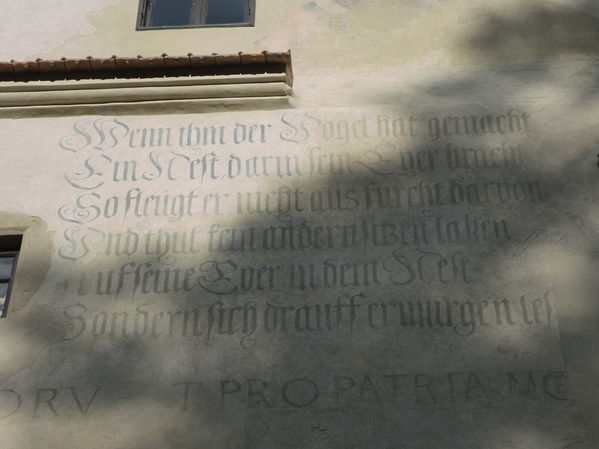 Wenn ihm der Vogel hat gemacht
Ein Nest darin sein Eyer bracht
So fleugt er nicht aus furcht darvon
Und thut kein andern sitzen laßen
Auf seine Eyer in dem Nest
Sondern sich drauff erwurgen lest
ORV T PRO PATRIA MO